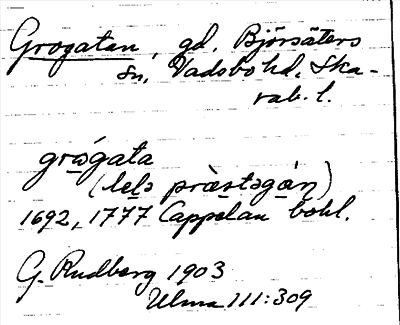 Grogatan, gd. Björsäters
sn, Vadsbo hd, Ska-
rab. l.
grǿgata
(lelə præstəgáṇ)
1692, 1777 Cappelan bohl.
G. Rudberg 1903
Ulma 111:309